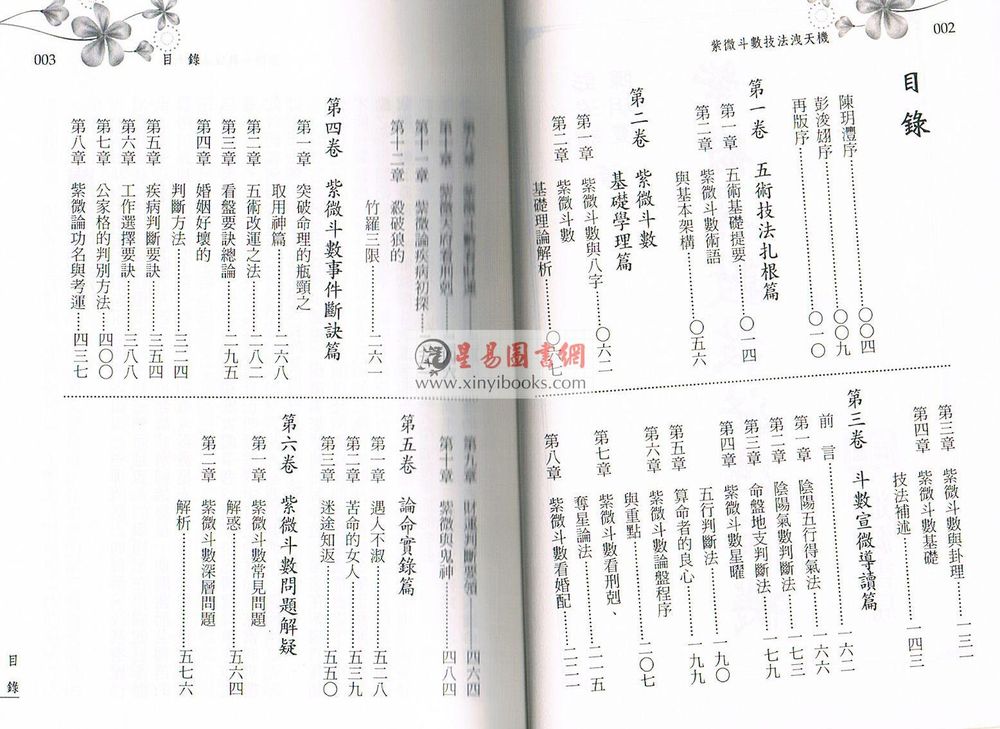 002
紫微斗數技法洩天機
目錄
陳玥澧序⋯⋯〇〇四
彭浚翃序⋯⋯〇〇九
再版序⋯⋯〇一〇
第一卷 五術技法扎根篇
第一章 五術基礎提要⋯⋯〇一四
第二章 紫微斗數術語
與基本架構⋯⋯〇五六
第二卷 紫微斗數
基礎學理篇
第一章 紫微斗數與八字⋯⋯〇六二
第二章 紫微斗數
基礎理論解析⋯⋯〇六七
第三章 紫微斗數與卦理⋯⋯一三一
第四章 紫微斗數基礎
技法補述⋯⋯一四三
第三卷 斗數宣微導讀篇
前言⋯⋯一六二
第一章 陰陽五行得氣法⋯⋯一六六
第二章 陰陽氣數判斷法⋯⋯一七三
第三章 命盤地支判斷法⋯⋯一七九
第四章 紫微斗數星曜
五行判斷法⋯⋯一九〇
第五章 算命者的良心⋯⋯一九九
第六章 紫微斗數論盤程序
與重點⋯⋯二〇七
第七章 紫微斗數看刑剋、
奪星論法⋯⋯二一五
第八章 紫微斗數看婚配⋯⋯二二一
003
目錄
第十一章 紫微論疾病初探
第十二章 殺破狼的
竹羅三限⋯⋯二六一
第四卷 紫微斗數事件斷訣篇
第一章 突破命理的瓶頸之
取用神篇⋯⋯二六八
第二章 五術改運之法⋯⋯二八二
第三章 看盤要訣總論⋯⋯二九五
第四章 婚姻好壞的
判斷方法⋯⋯三二四
第五章 疾病判斷要訣⋯⋯三五四
第六章 工作選擇要訣⋯⋯三八八
第七章 公家格的判別方法⋯⋯四〇〇
第八章 紫微論功名與考運⋯⋯四三七
第九章 財運判斷要領⋯⋯四六四
第十章 紫微與鬼神⋯⋯四八四
第五卷 論命實錄篇
第一章 遇人不淑⋯⋯五二八
第二章 苦命的女人⋯⋯五三九
第三章 迷途知返⋯⋯五五〇
第六卷 紫微斗數問題解疑
第一章 紫微斗數常見問題
解惑⋯⋯五六四
第二章 紫微斗數深層問題
解析⋯⋯五七六
目錄
星易圖書網
www.xinyibooks.com